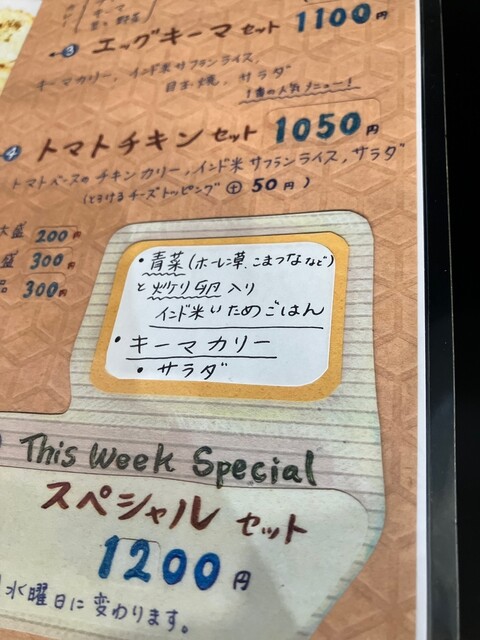 1100円
③ エッグキーマセット
キーマカリー、インド米サフランライス、
目玉焼、サラダ
1番の人気メニュー!
④ トマトチキンセット 1050円
トマトベースのチキンカリー、インド米サフランライス、サラダ
(とろけるチーズトッピング ⊕ 50円)
大盛 200円
盛 300円
品 300円
・青菜(ホーレン草、こまつななど)
と炒り卵入り
インド米いためごはん
・キーマカリー
・サラダ
This Week Special
スペシャルセット
1200円
水曜日に変わります。